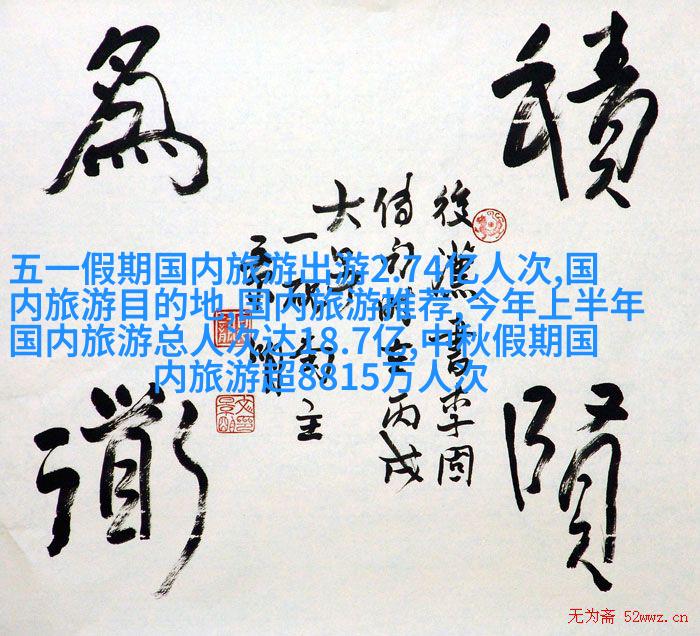 積賢
為
後漢書李固
丙戌
五一假期国内旅游出游2.74亿人次,国
内旅游目的地,国内旅游推荐,今年上半年
国内旅游总人次达18.7亿,中秋假期国
内旅游超8815万人次
无为斋 52wwz.cn